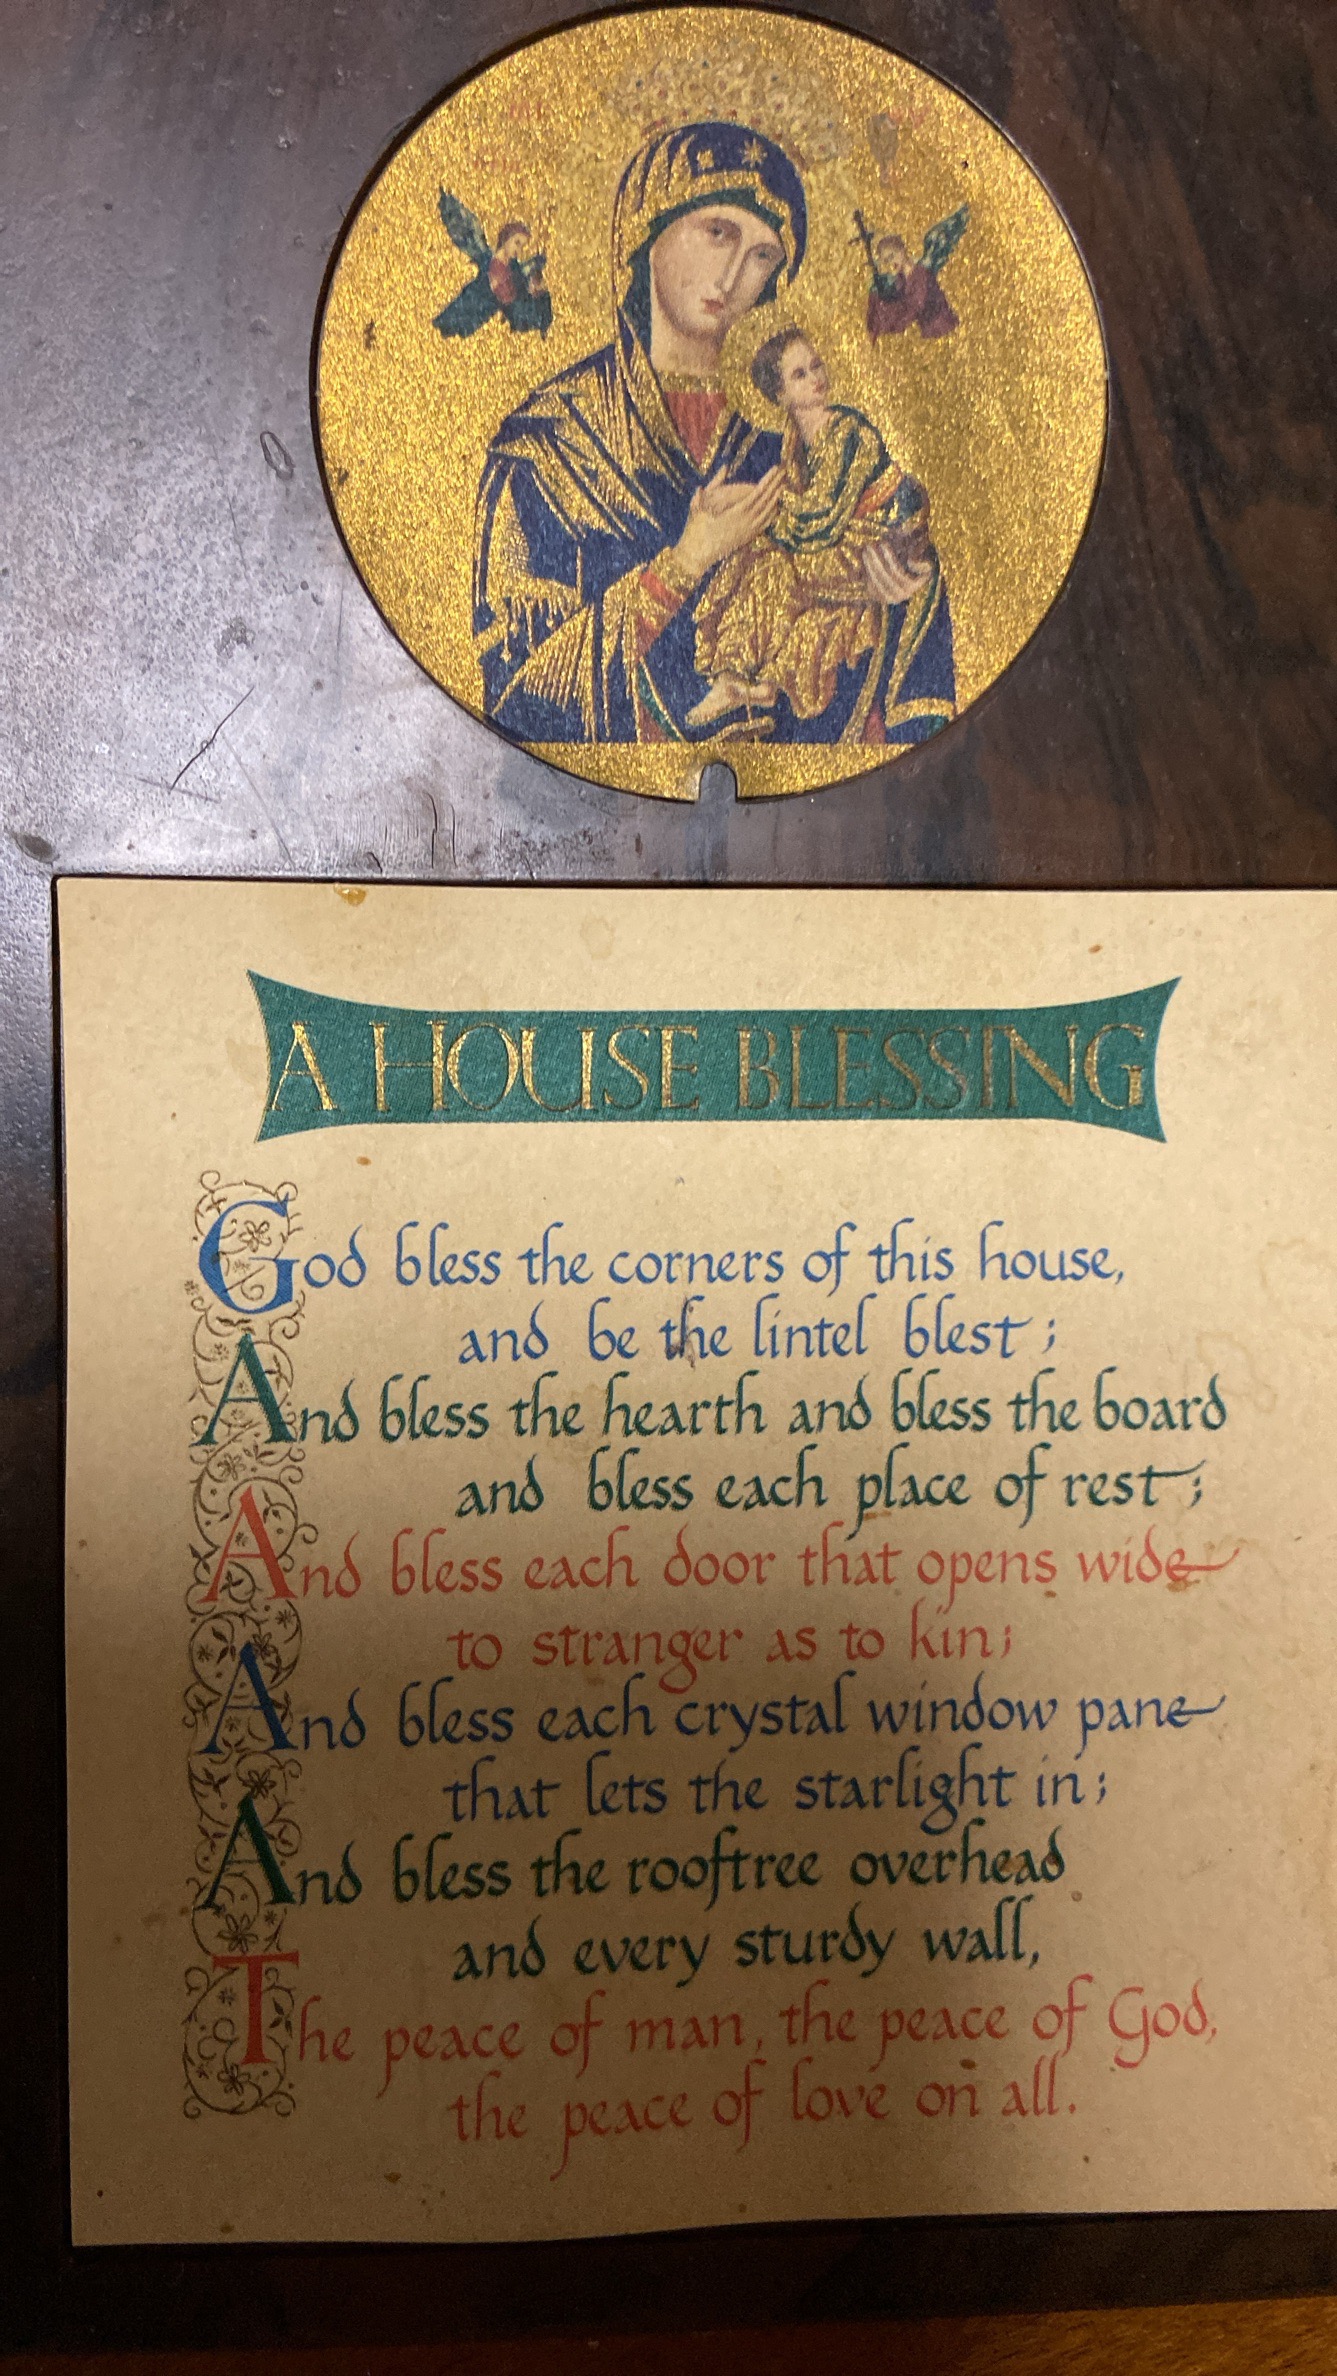 A HOUSE BLESSING
God bless the corners of this house,
and be the lintel blest;
And bless the hearth and bless the board
and bless each place of rest;
And bless each door that opens wide
to stranger as to kin;
And bless each crystal window pane
that lets the starlight in;
And bless the rooftree overhead
and every sturdy wall,
The peace of man, the peace of God,
the peace of love on all.